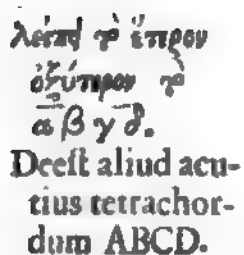 λείπει τὸ ἕτερον
ὀξύτερον τὸ
α β γ δ.
Deeſt aliud acu-
tius tetrachor-
dum ABCD.